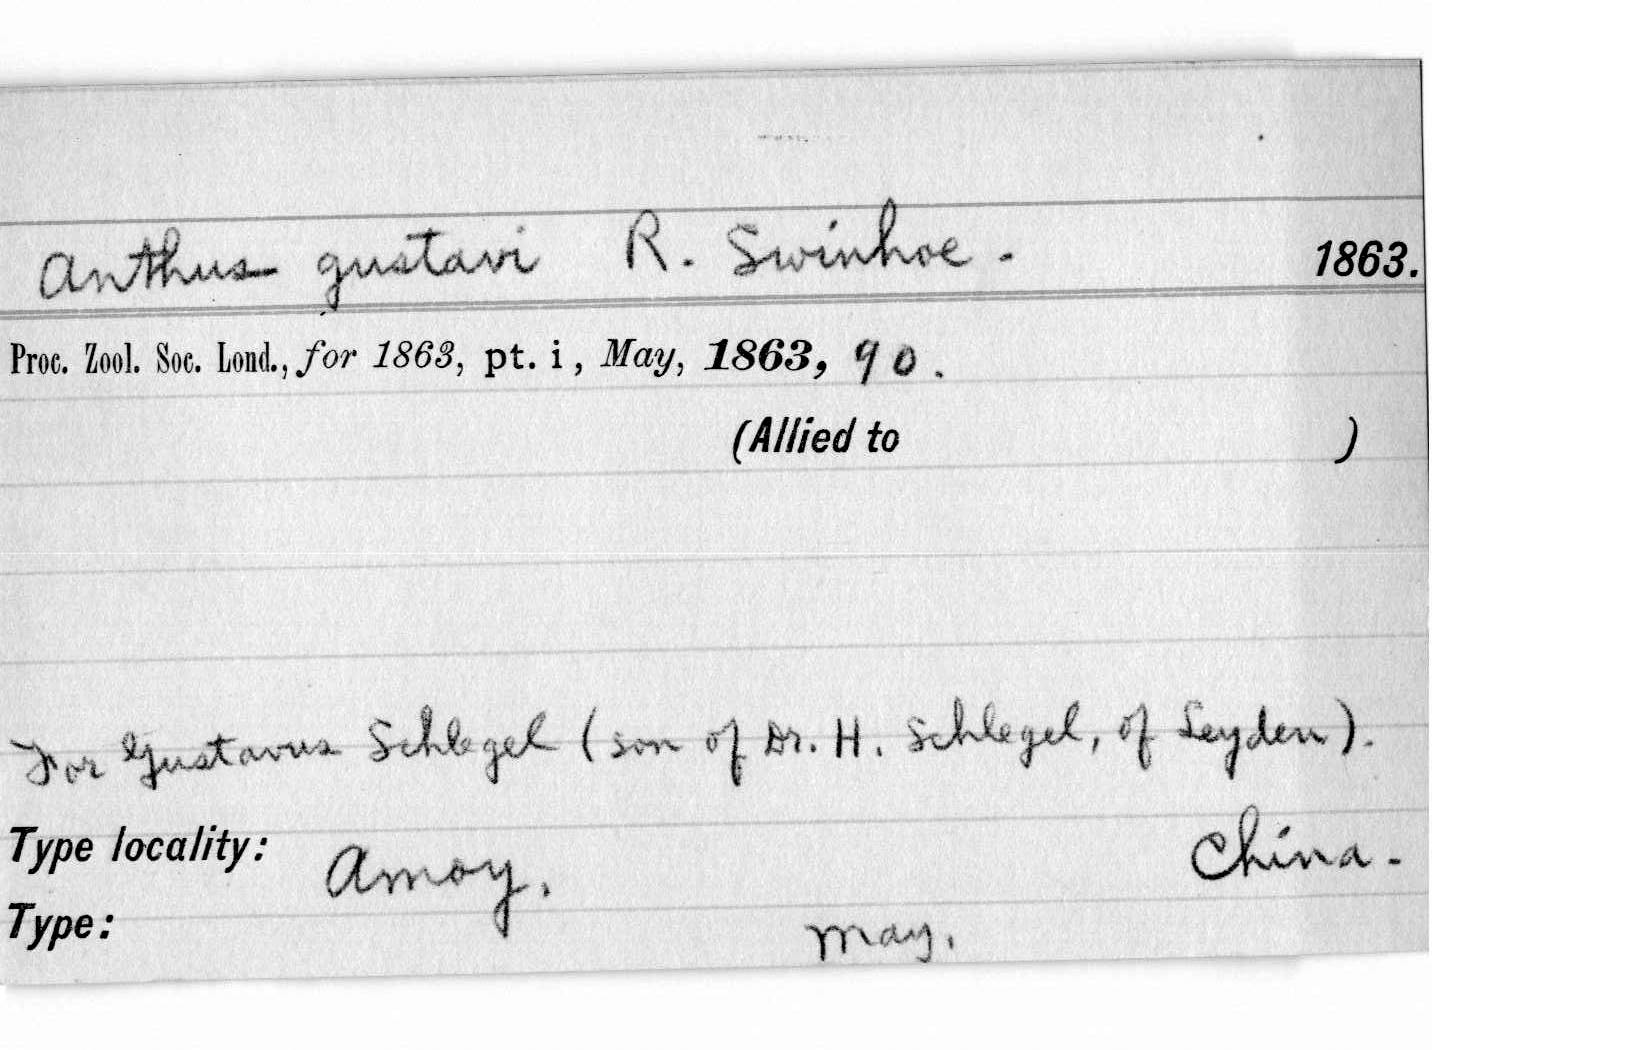 Anthus gustavi R. Swinhoe. 1863.
Proc. Zool. Soc. Lond., for 1863, pt. i, May, 1863, 90.
(Allied to )
For Gustavus Schlegel (son of Dr. H. Schlegel, of Leyden).
Type locality: Amoy. China.
Type: May.